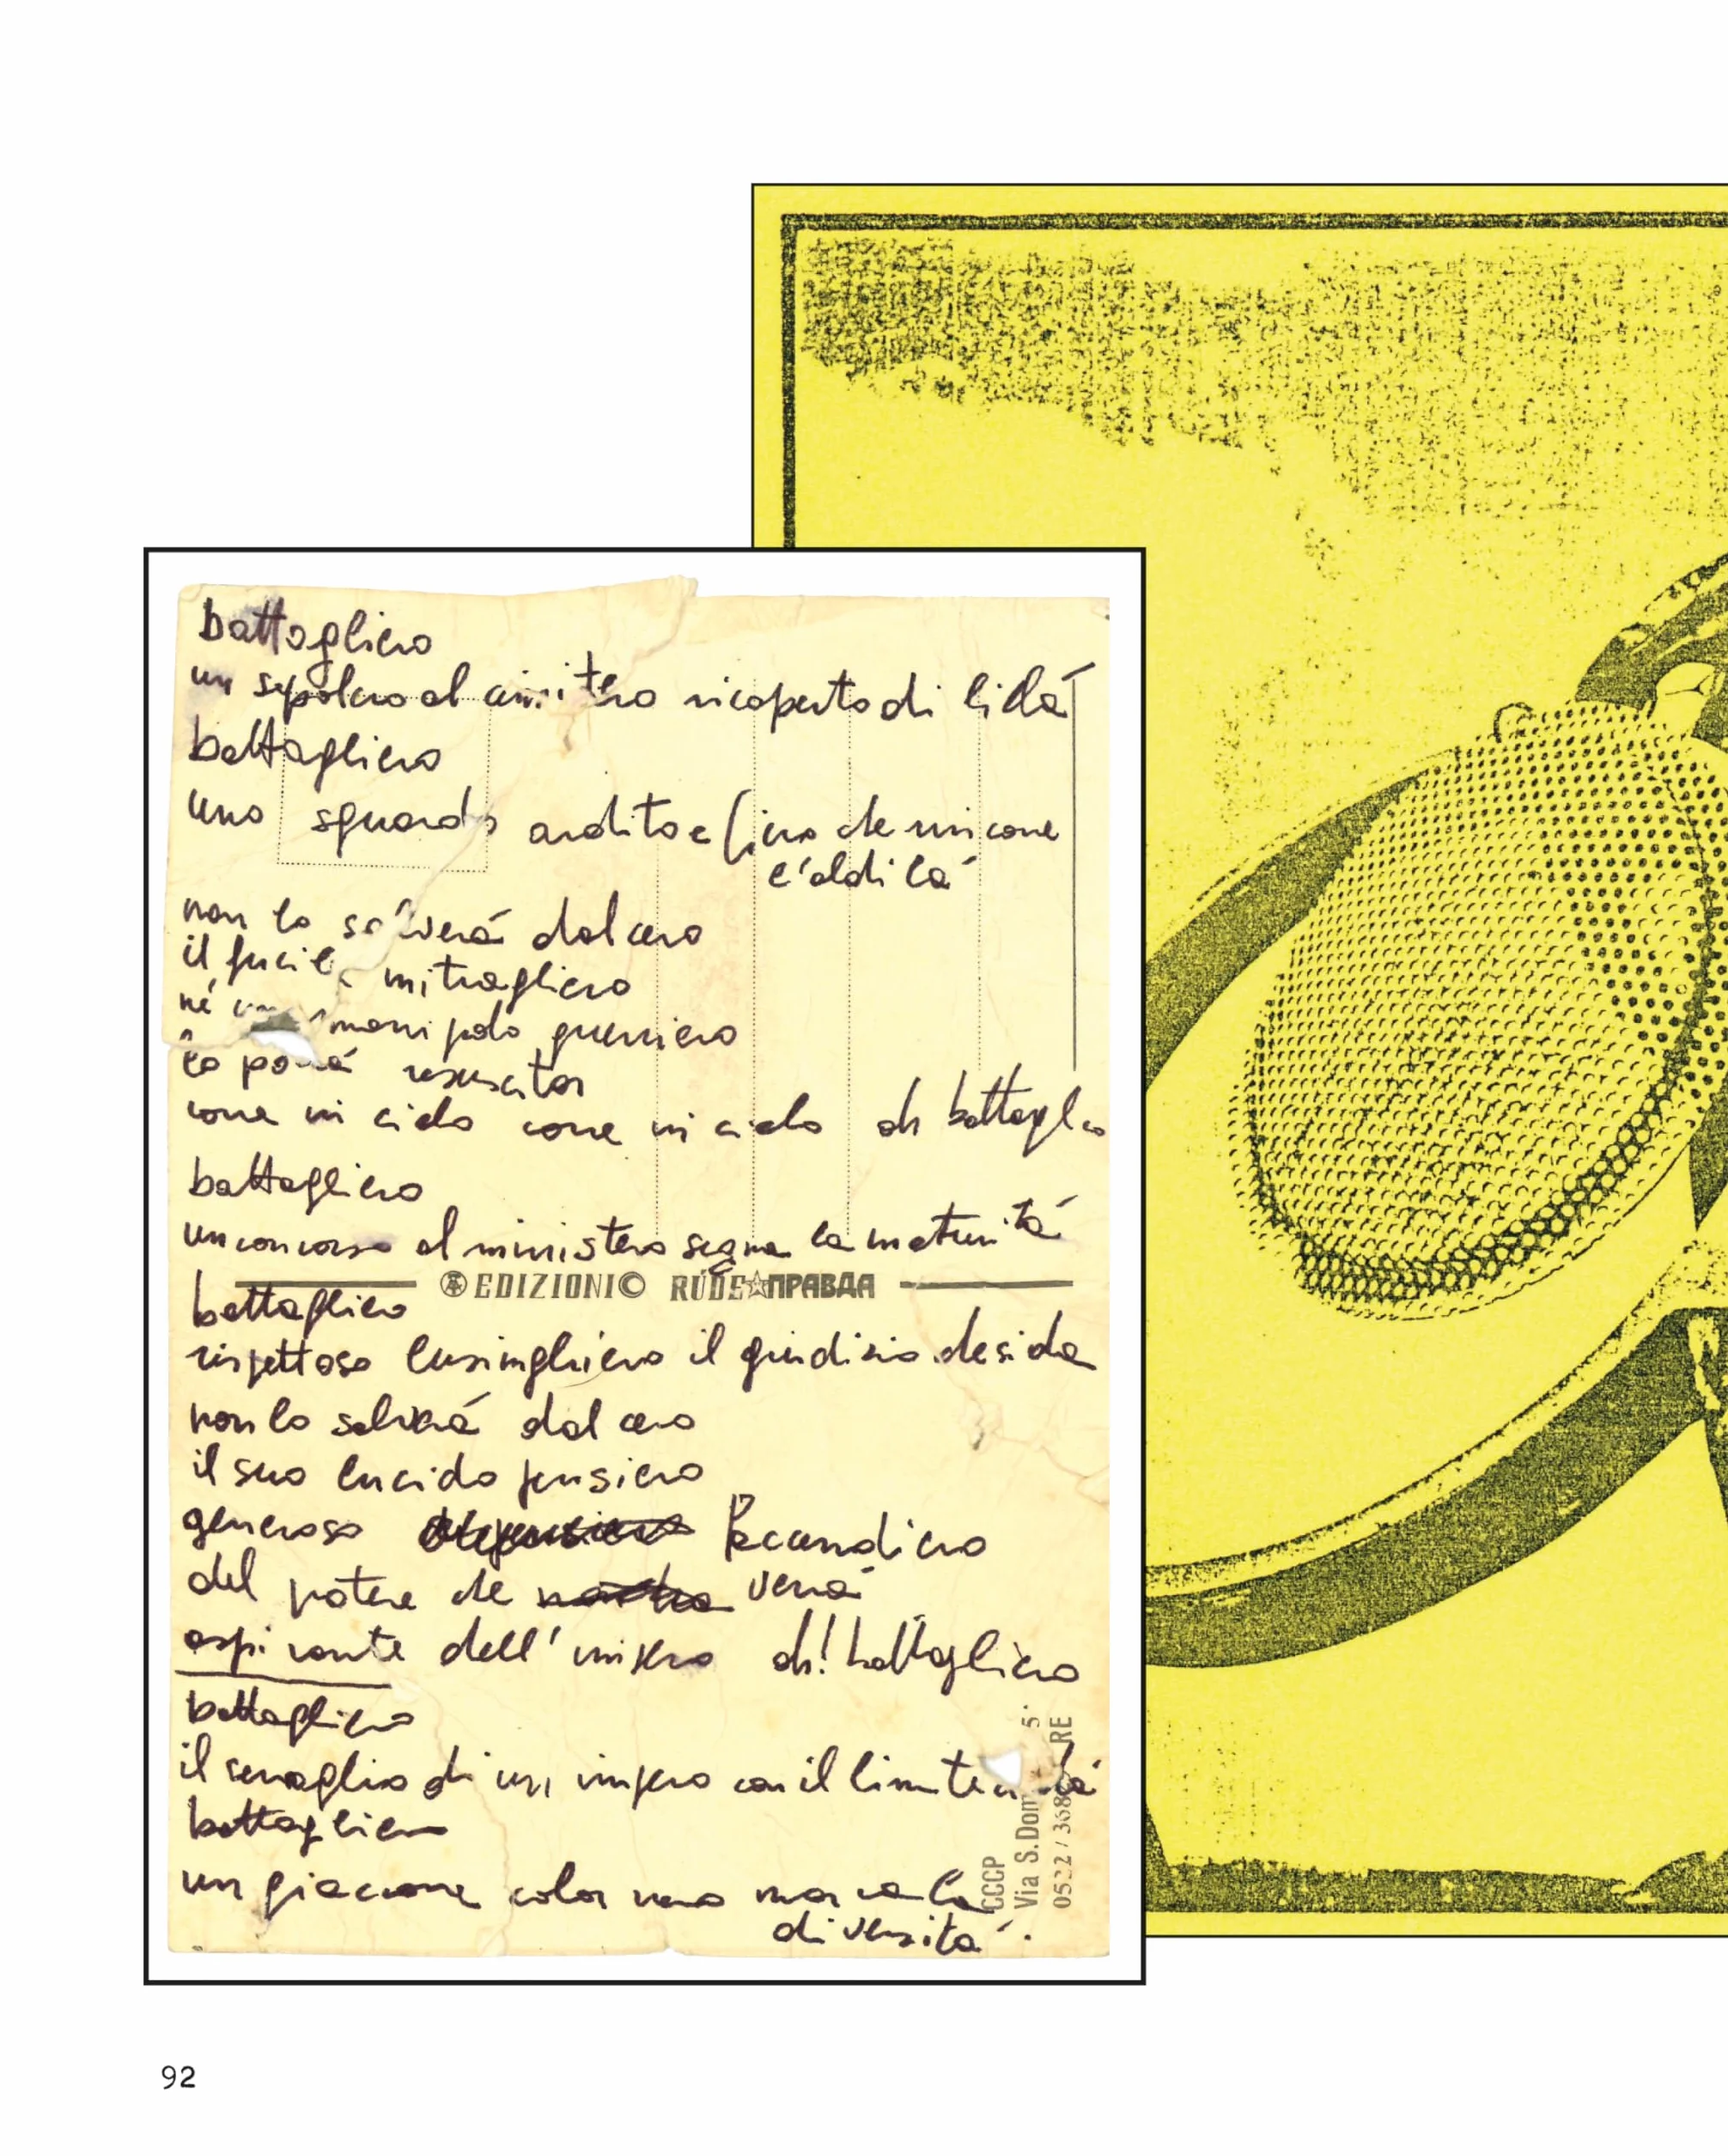 battagliero
un sepolcro al cimitero ricoperto di lillá
battagliero
uno sguardo ardito e fiero che rincorre
l'aldilá
non lo salverá dal cero
il fucile mitragliero
né manipolo guerriero
lo potrá resuscitar
corre in cielo corre in cielo oh battagliero
battagliero
un concorso al ministero segna la maturitá
EDIZIONI© RÚDE☆ПРАВДА
battagliero
rispettoso lusinghiero il giudizio che si da
non lo salverá dal cero
il suo lucido pensiero
generoso faccendiero
del potere che verrá
aspirante dell'impero oh! battagliero
battagliero
il serraglio di un impero con il limite
battagliero
un giaccone color nero marca la
diversitá.
CCCP
Via S.Dom 5.
0522 / 368 RE
92